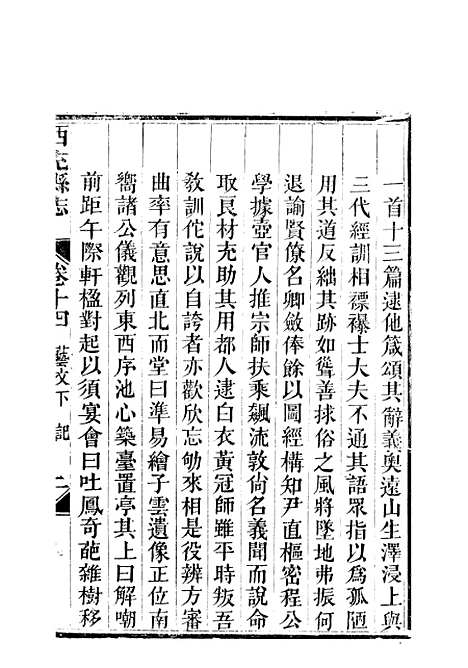 一首十三篇逮他箴頌其辭義奧遠山生澤浸上與
三代經訓相褾襮士大夫不通其語眾指以為孤陋
用其道反絀其跡如聾善捄俗之風將墜地弗振何
退諭賢僚名卿斂俸餘以圖經構知尹直樞密程公
學據壺官人推宗師扶乘飆流敦尙名義聞而說命
取良材充助其用都人逮白衣黃冠師雖平時叛吾
敎訓佗說以自誇者亦歡欣忘劬來相是役辨方審
曲率有意思直北而堂曰準易繪子雲遺像正位南
嚮諸公儀觀列東西序池心築臺置亭其上曰解嘲
前距午際軒楹對起以須宴會曰吐鳳奇葩雜樹移
西充縣志 卷十四 藝文下 記